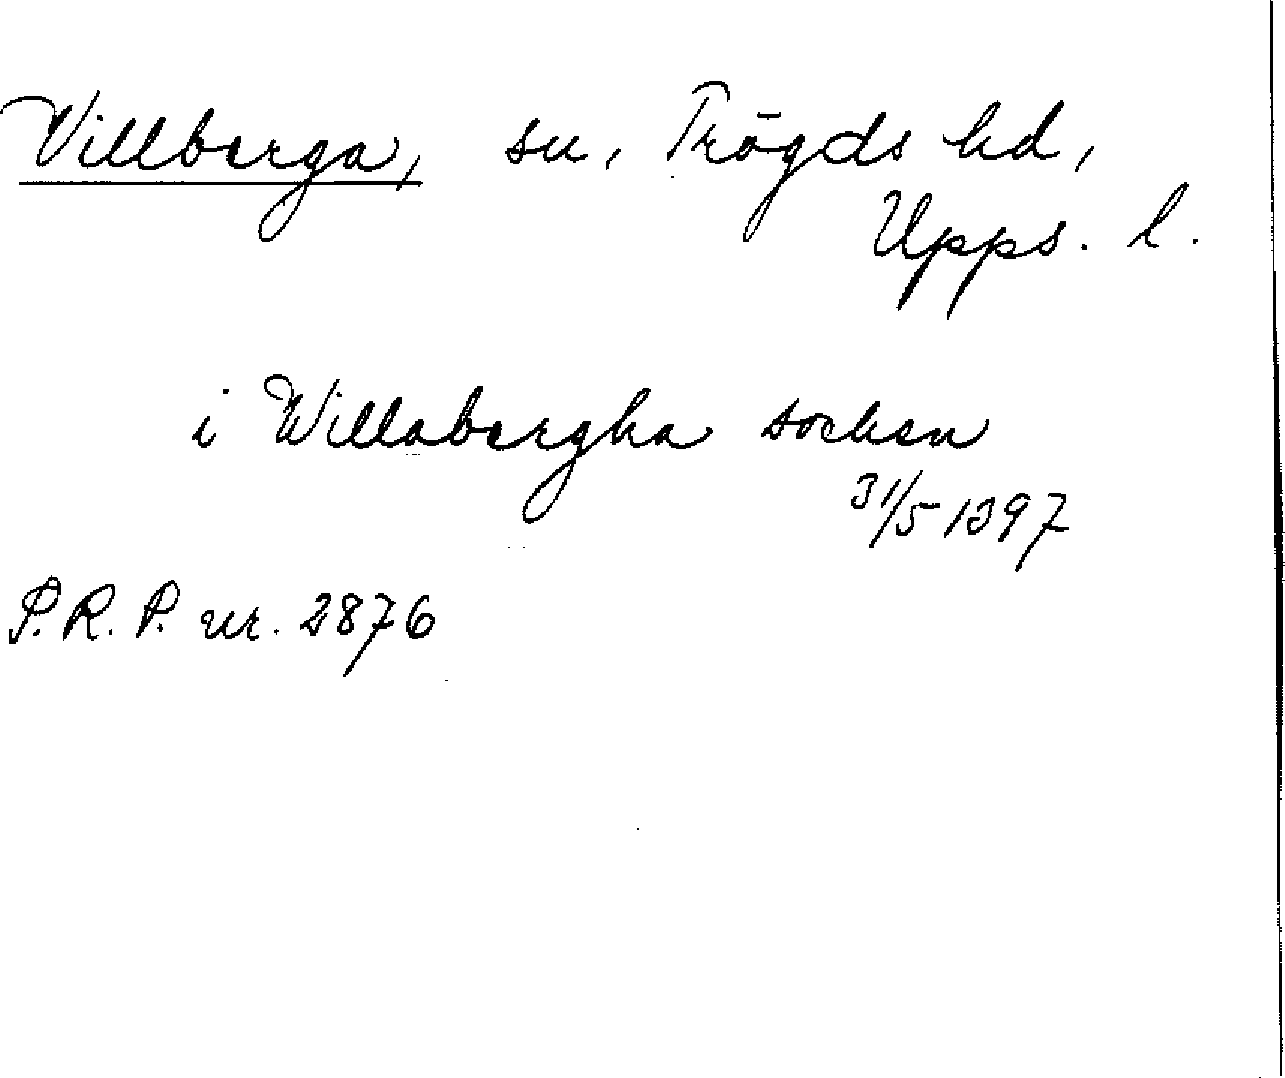 Villberga, sn, Trögds hd,
Upps. l.
i Willabergha sochen
31/5 1397
P.R.P. nr. 2876